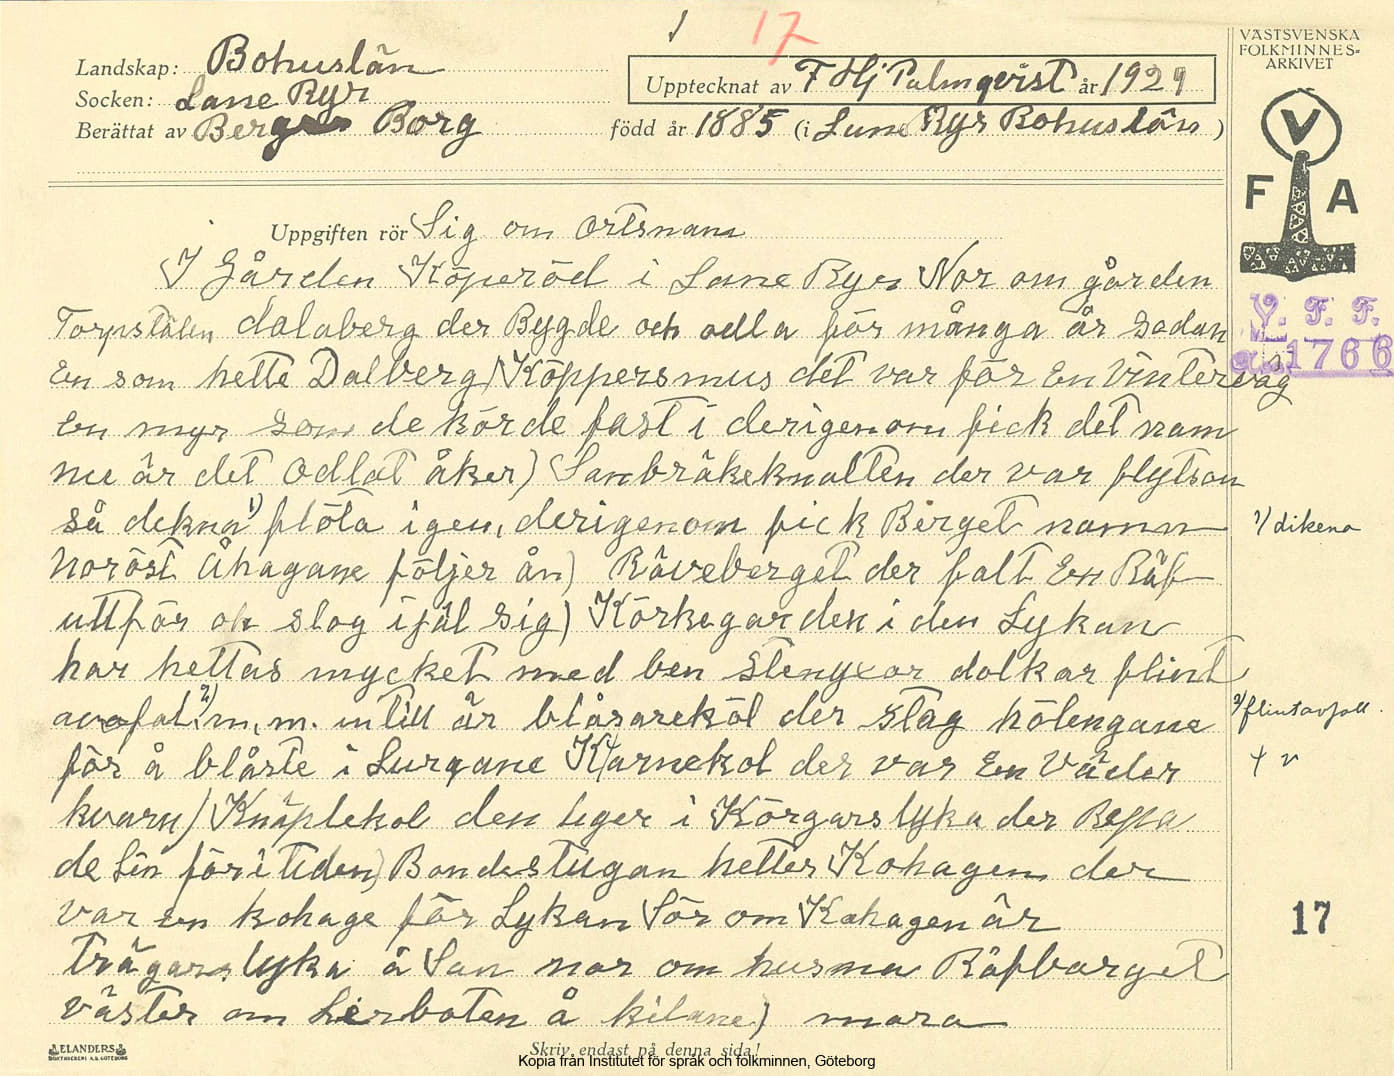 1 17
VÄSTSVENSKA
FOLKMINNES-
ARKIVET
Landskap: Bohuslän
Upptecknat av F Hj Palmqvist år 1929
Socken: Lane Ryr
Berättat av Borg
född år 1885 (i Lane Ryr Bohuslän)
V
F A
Uppgiften rör Sig om ortsnam
I Gården Köperöd i Lane Ryr Nor om gården
Torpstälen dalaberg der Bygde och odla för många år sedan
En som hette Dalberg) Köppersmus det var för En Vinterväg
En myr som de körde fast i derigenom fick det nam
nu är det odlat åker) Sanbräkeknalten der var flytsan
så dekna 1) flöta igen, derigenom fick Berget namn
Noröst Åhagane följer ån) Räveberget der falt En Räf
uttför ok slog ijäl sig) Körkegarden i den Lykan
har hettas mycket med ben stenyxor dolkar flint
avafal 2) m, m. intill är blåsareköl der stag hölengane
för å blåste i Lurqane Kvarnekol der var En Väder
kvarn) Knäplekol den liger i Körgarslyka der Repa
de Lin för i tiden) Bondestugan hetter Kohagen der
var En kohage för Lykan Sör om Kohagen är
Trägarslyka å San nor om husma Räfbarget
väster om Lerboten å kilane) mora
V. F. F.
1766
1) dikena
2) flintavfall.
+ v
17
ELANDERS
BOKTRYCKERI A.B. GÖTEBORG
Skriv endast på denna sida!
Kopia från Institutet för språk och folkminnen, Göteborg